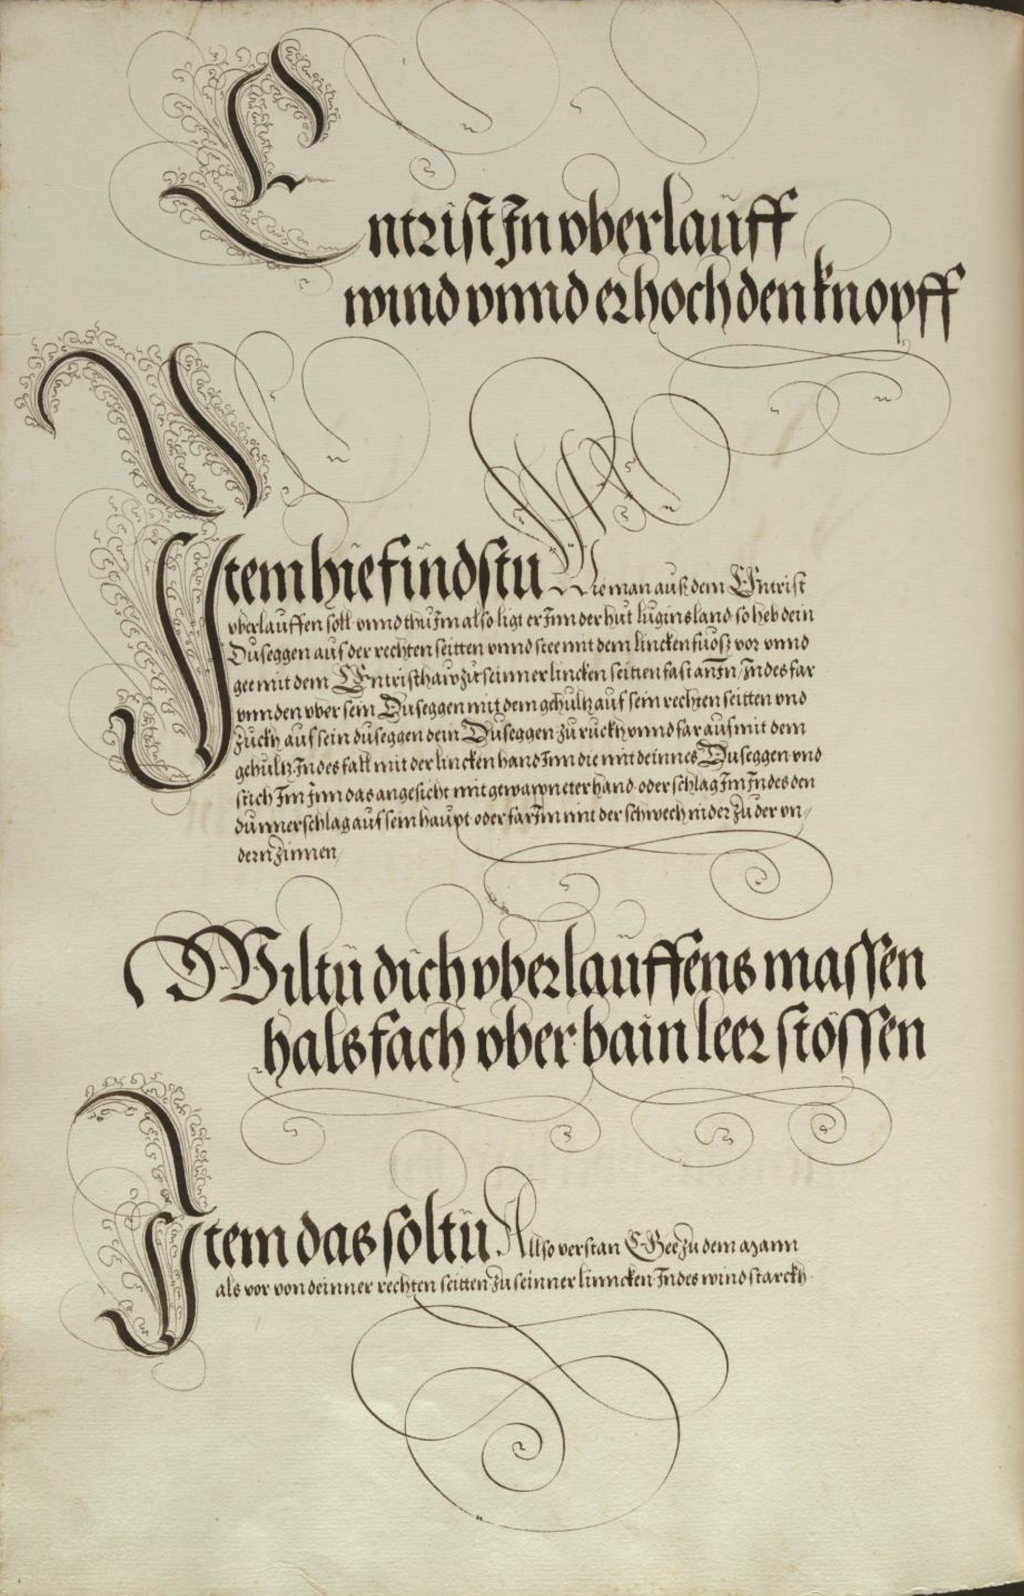 Entrist In vberlauff
wind vnnd erhoch den knopff
Item hie findstu Wie man auß dem Entrist
vberlauffen soll vnnd thu Im also ligt er Inn der hut luginsland so heb dein
Duseggen auf der rechten seitten vnnd stee mit dem lincken fuoß vor vnnd
gee mit dem Entristhaw zu seinner lincken seitten fast an In / Indes far
vnnden vber sein Duseggen mit dem gehultz auf sein rechten seitten vnd
zuckh auf sein duseggen dein Duseggen zu ruckh vnnd far auf mit dem
gehultz Indes fall mit der lincken hand Inn die mit deinnes Duseggen vnd
stich Im Inn das angesicht mit gewappneter hand oder schlag Im Indes den
dunnerschlag auf sein haupt oder far Im mit der schwech nider zu der vn/
dern zinnen /
Wiltu dich vberlauffens massen
hals fach vber bain leer stossen
Item das soltu Allso verstan Gee zu dem Mann
als vor von deinner rechten seitten zu seinner linncken Indes wind starckh